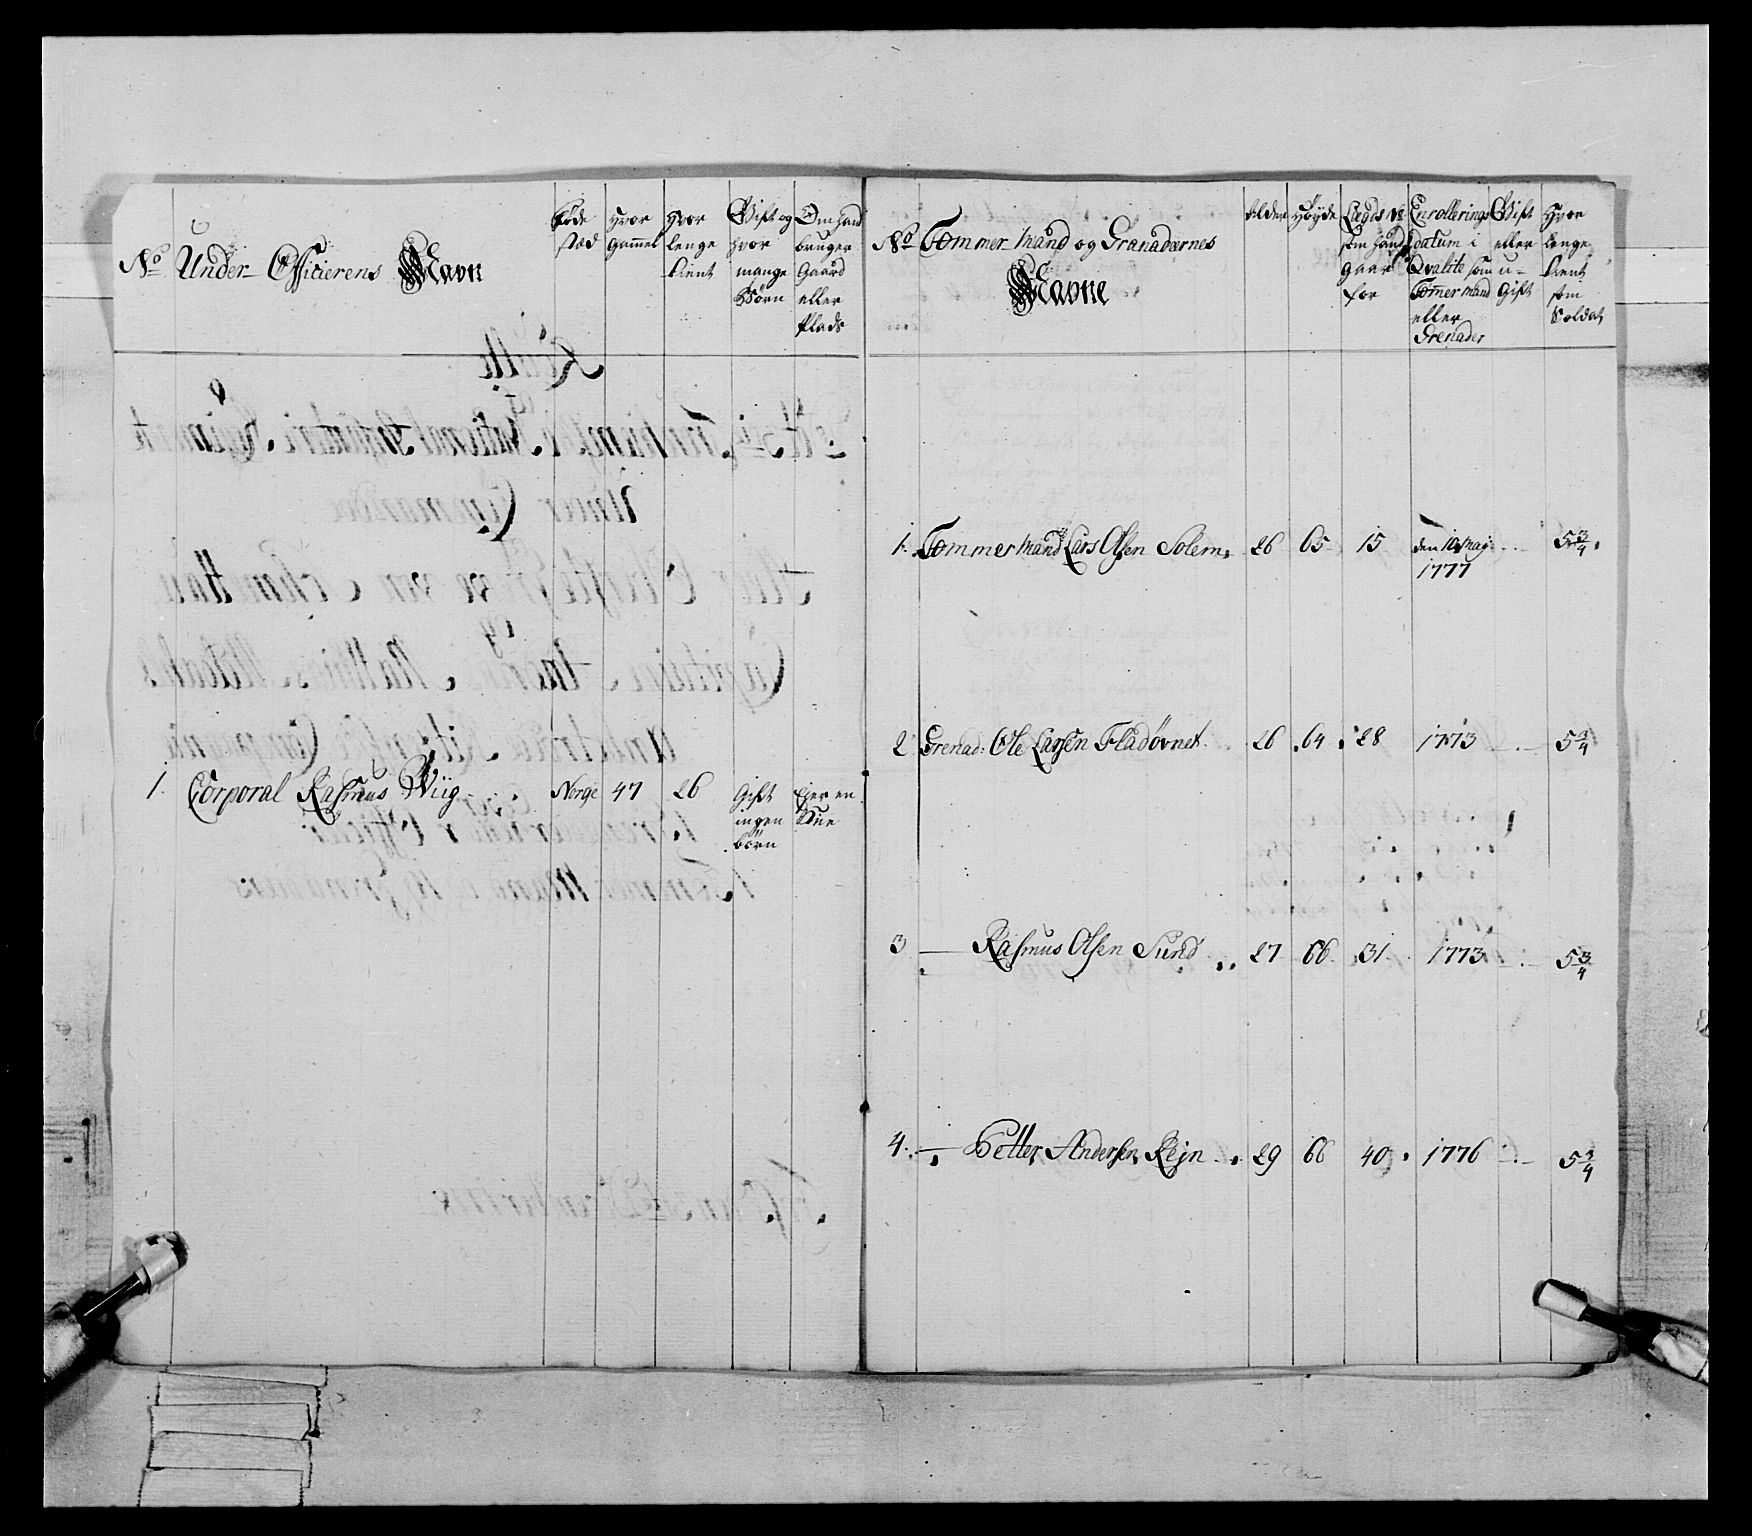 No
Under Officierens Navn
Føde
stæd
Hvor
Gammel
Hvor
lenge
tient
Gift og
hvor
mange
Børn
Om hand
bruger
Gaard
eller
Plads
1. Corporal Rasmus Wiig Norge 47 26
Gift
ingen
børn
Ejer en
No Tømmer Mand og Granadærnes
Navne
Alder
Høyde
Lægds No
som hand
gaar
for
Enrollerings
datum i
Qvalite som
Tømer mand
eller
Grenader
Gift
eller
u-
Gift
Hvor
lenge
tient
som
Soldat
1. Tømmer Mand Lars Olsen Solem. 26 65 15 den 10 Maj 5 3/4.
1777
2 Grenad: Ole Larsen Fladøvnet. 26 64 28 1773 5 3/4
3 — Rasmus Olsen Sund 27 66 31 1773 5 3/4
4. — Petter Andersen Rejn 29 66 40 1776 5 3/4